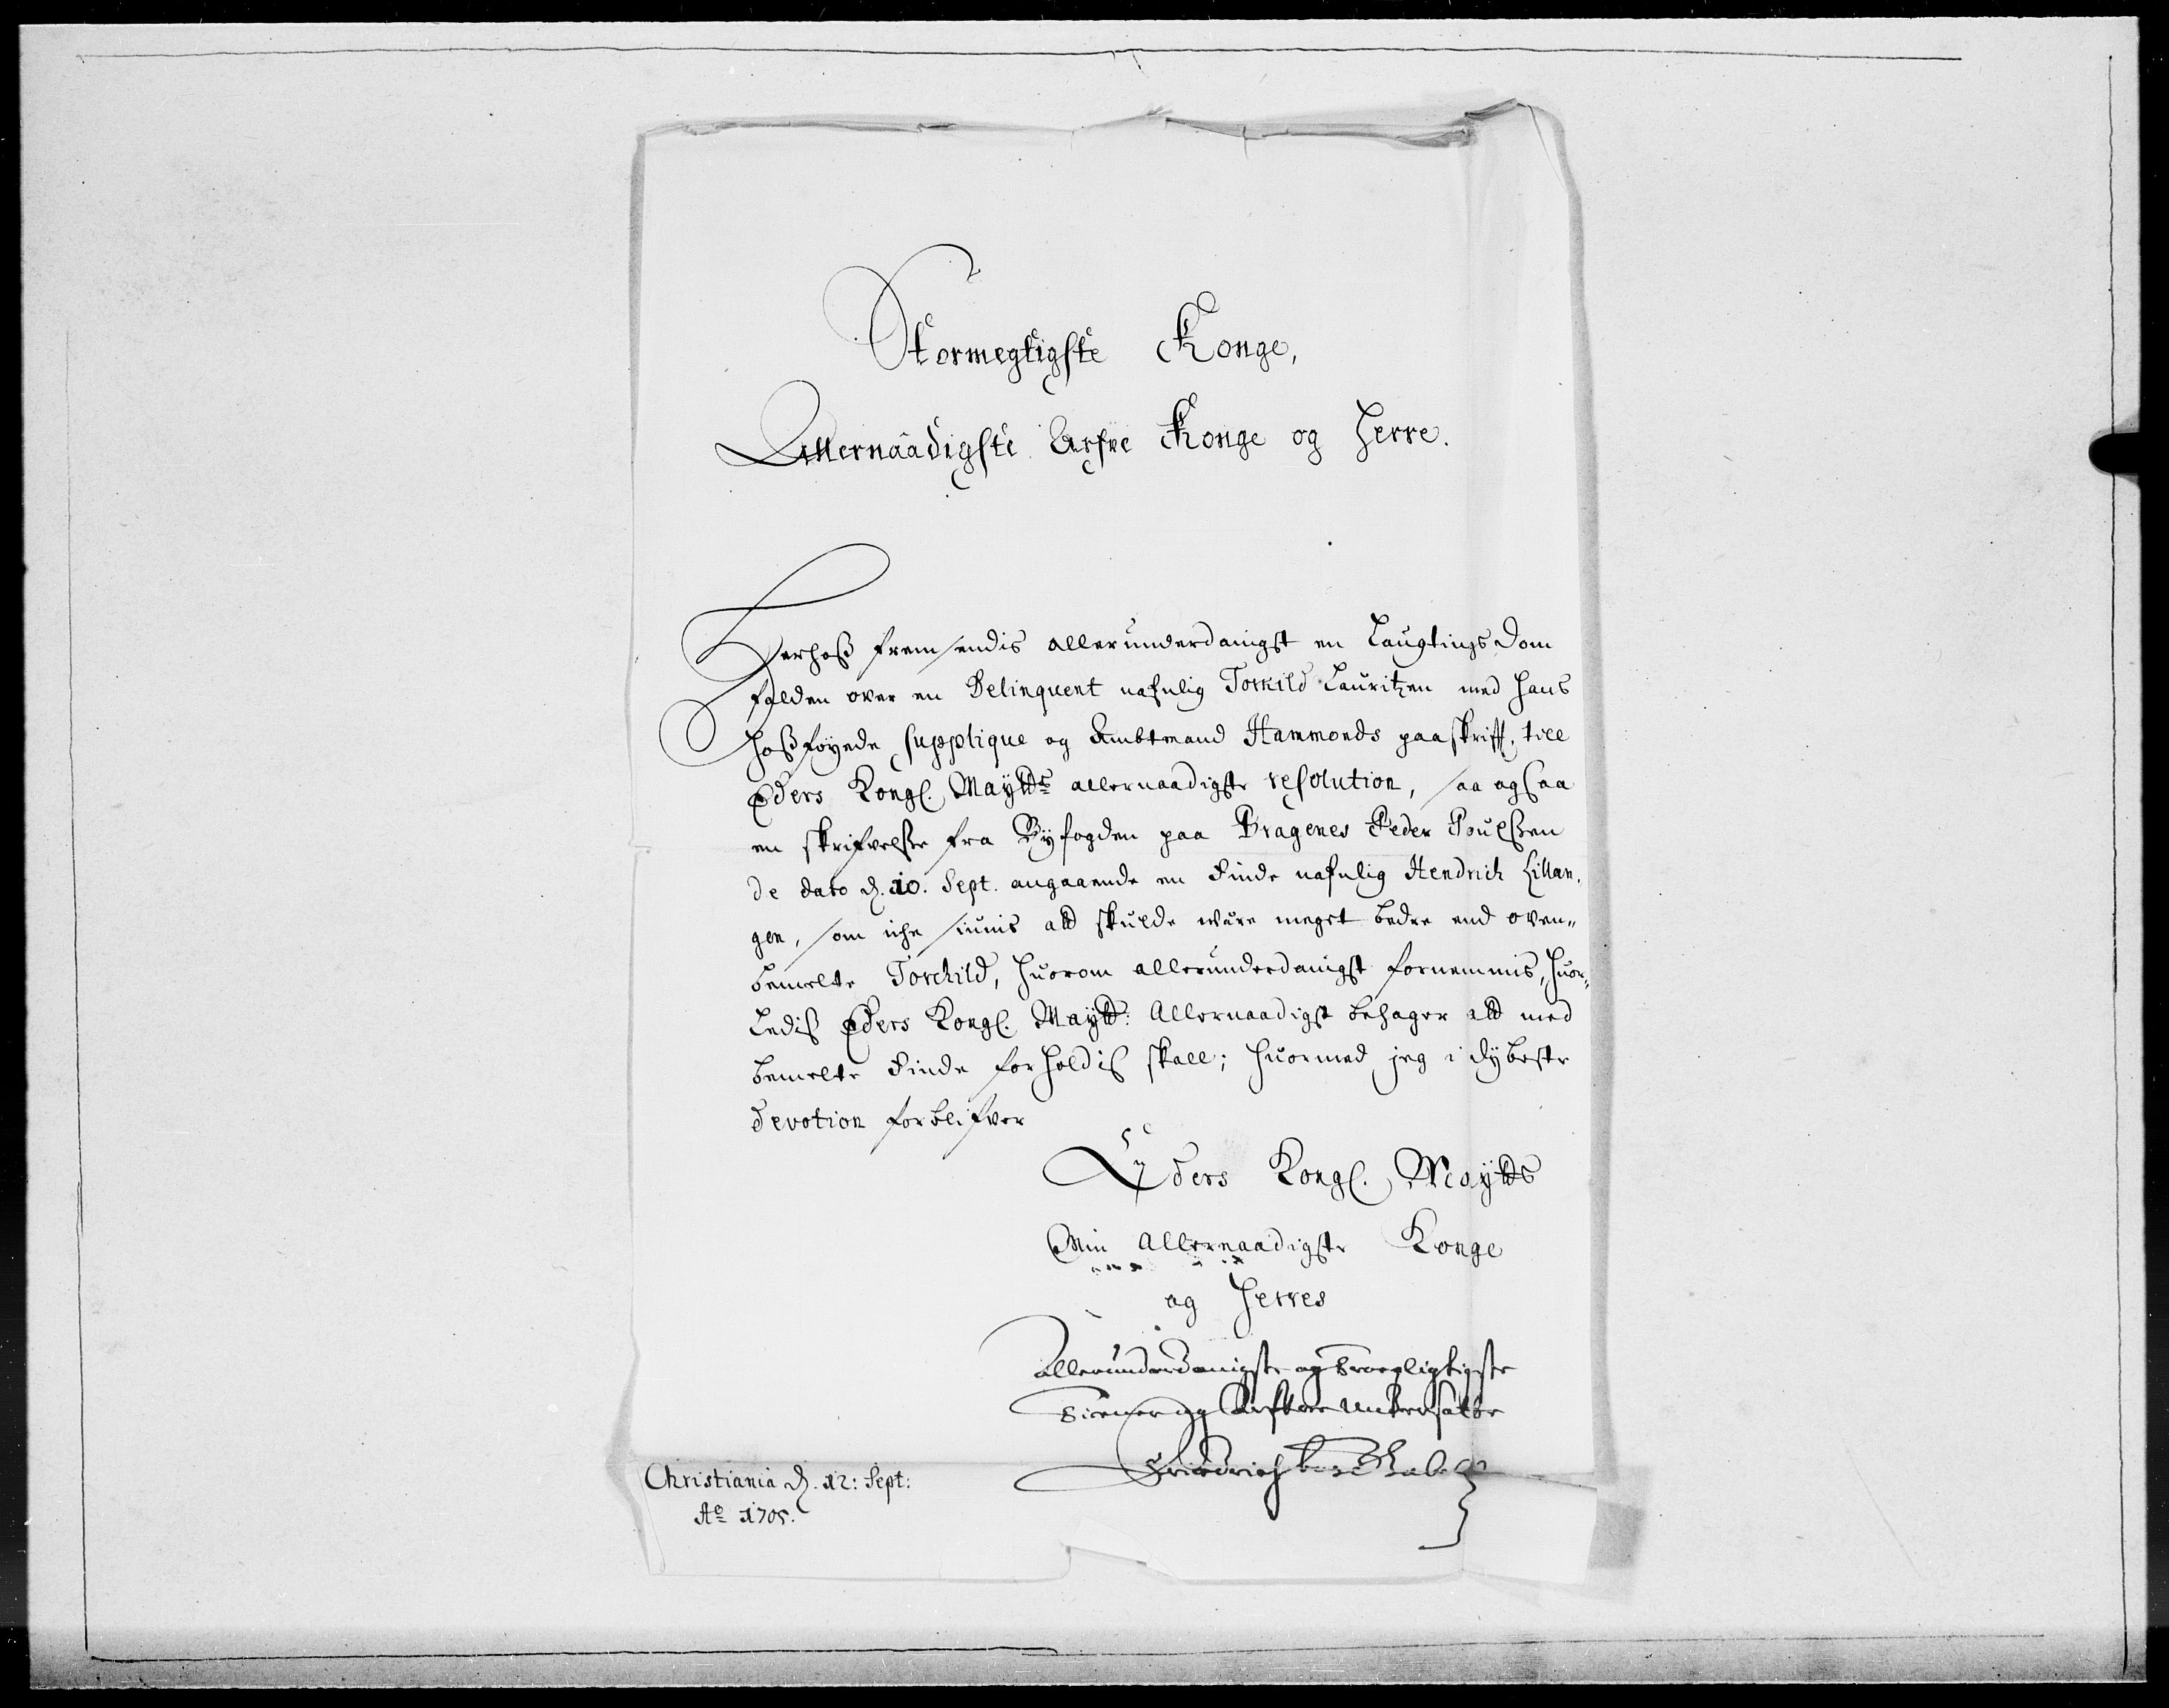 Stormegtigste Konge,
Allernaadigste Arfve Konge og Herre.
Herhoß fremsendis allerunderdanigst en Laugtings Dom
falden over en Delinquent nafnlig Torkild Lauritzen med hans
hoßføyede supplique og Ambtmand Hammonds paaskrifft, till
Eders Kongl. Maytts allernaadigste resolution, saa ogsaa
en skrifvelße fra Byfogden paa Bragenes Peder Poulßen
de dato d. 10. Sept. angaaende en Finde nafnlig Hendrich Lillan,
gen, som iche siunis att skulde være meget bedre end oven„
bemelte Torchild, huorom allerunderdanigst fornemmis, huor„
Ledis Eders Kongl. Maytt: Allernaadigst behager att med
bemelte Finde forholdis skall; huormed jeg i dybeste
devotion forblifver
Eders Kongl. Maytts
Min Allernaadigste Konge
og Herres
allerunderdanigste og troepligtigste
tiener og Arfve undersatte
Friedrich Gabel
Christiania d. 12: Sept:
Ao 1705.